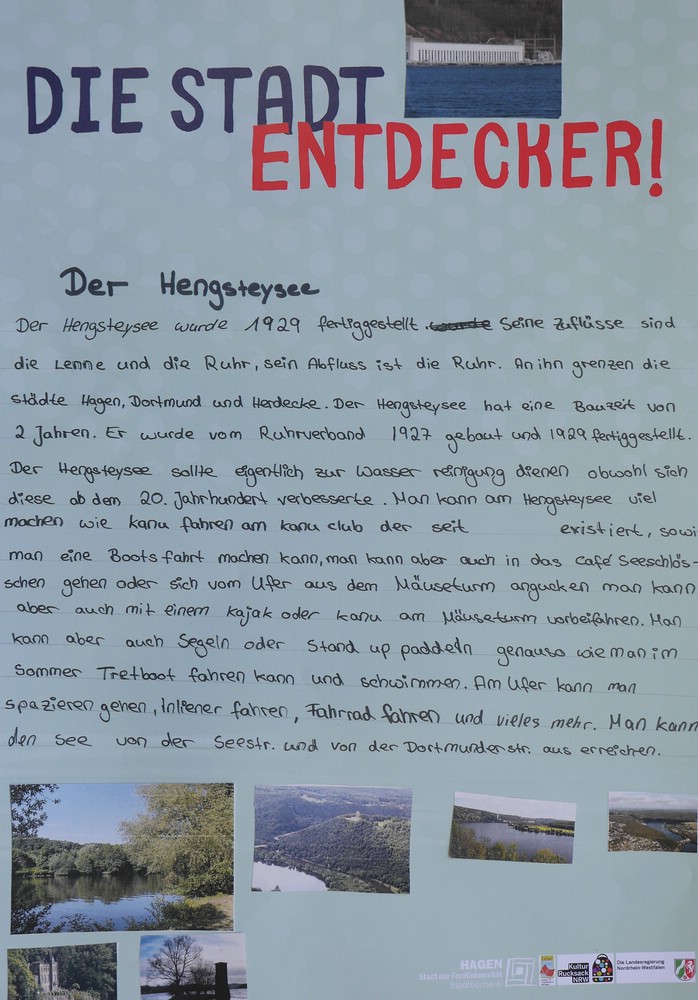 DIE STADT
ENTDECKER!
Der Hengsteysee
Der Hengsteysee wurde 1929 fertiggestellt. Seine Zuflüsse sind
die Lenne und die Ruhr, sein Abfluss ist die Ruhr. An ihn grenzen die
städte Hagen, Dortmund und Herdecke. Der Hengsteysee hat eine Bauzeit von
2 Jahren. Er wurde vom Ruhrverband 1927 gebaut und 1929 fertiggestellt.
Der Hengsteysee sollte eigentlich zur Wasser reinigung dienen obwohl sich
diese ab dem 20. Jahrhundert verbesserte. Man kann am Hengsteysee viel
machen wie kanu fahren am kanu club der seit existiert, sowi
man eine Boots fahrt machen kann, man kann aber auch in das café Seeschlös-
schen gehen oder sich vom Ufer aus dem Mäuseturm angucken man kann
aber auch mit einem kajak oder kanu am Mäuseturm vorbeifahren. Man
kann aber auch Segeln oder Stand up paddeln genauso wie man im
Sommer Tretboot fahren kann und schwimmen. Am Ufer kann man
spazieren gehen, Inliener fahren, Fahrrad fahren und vieles mehr. Man kann
den see von der Seestr. und von der Dortmunderstr. aus erreichen.
HAGEN
Stadt der FernUniversität
Stadtbücherei
Kultur
Rucksack
NRW
Die Landesregierung
Nordrhein-Westfalen